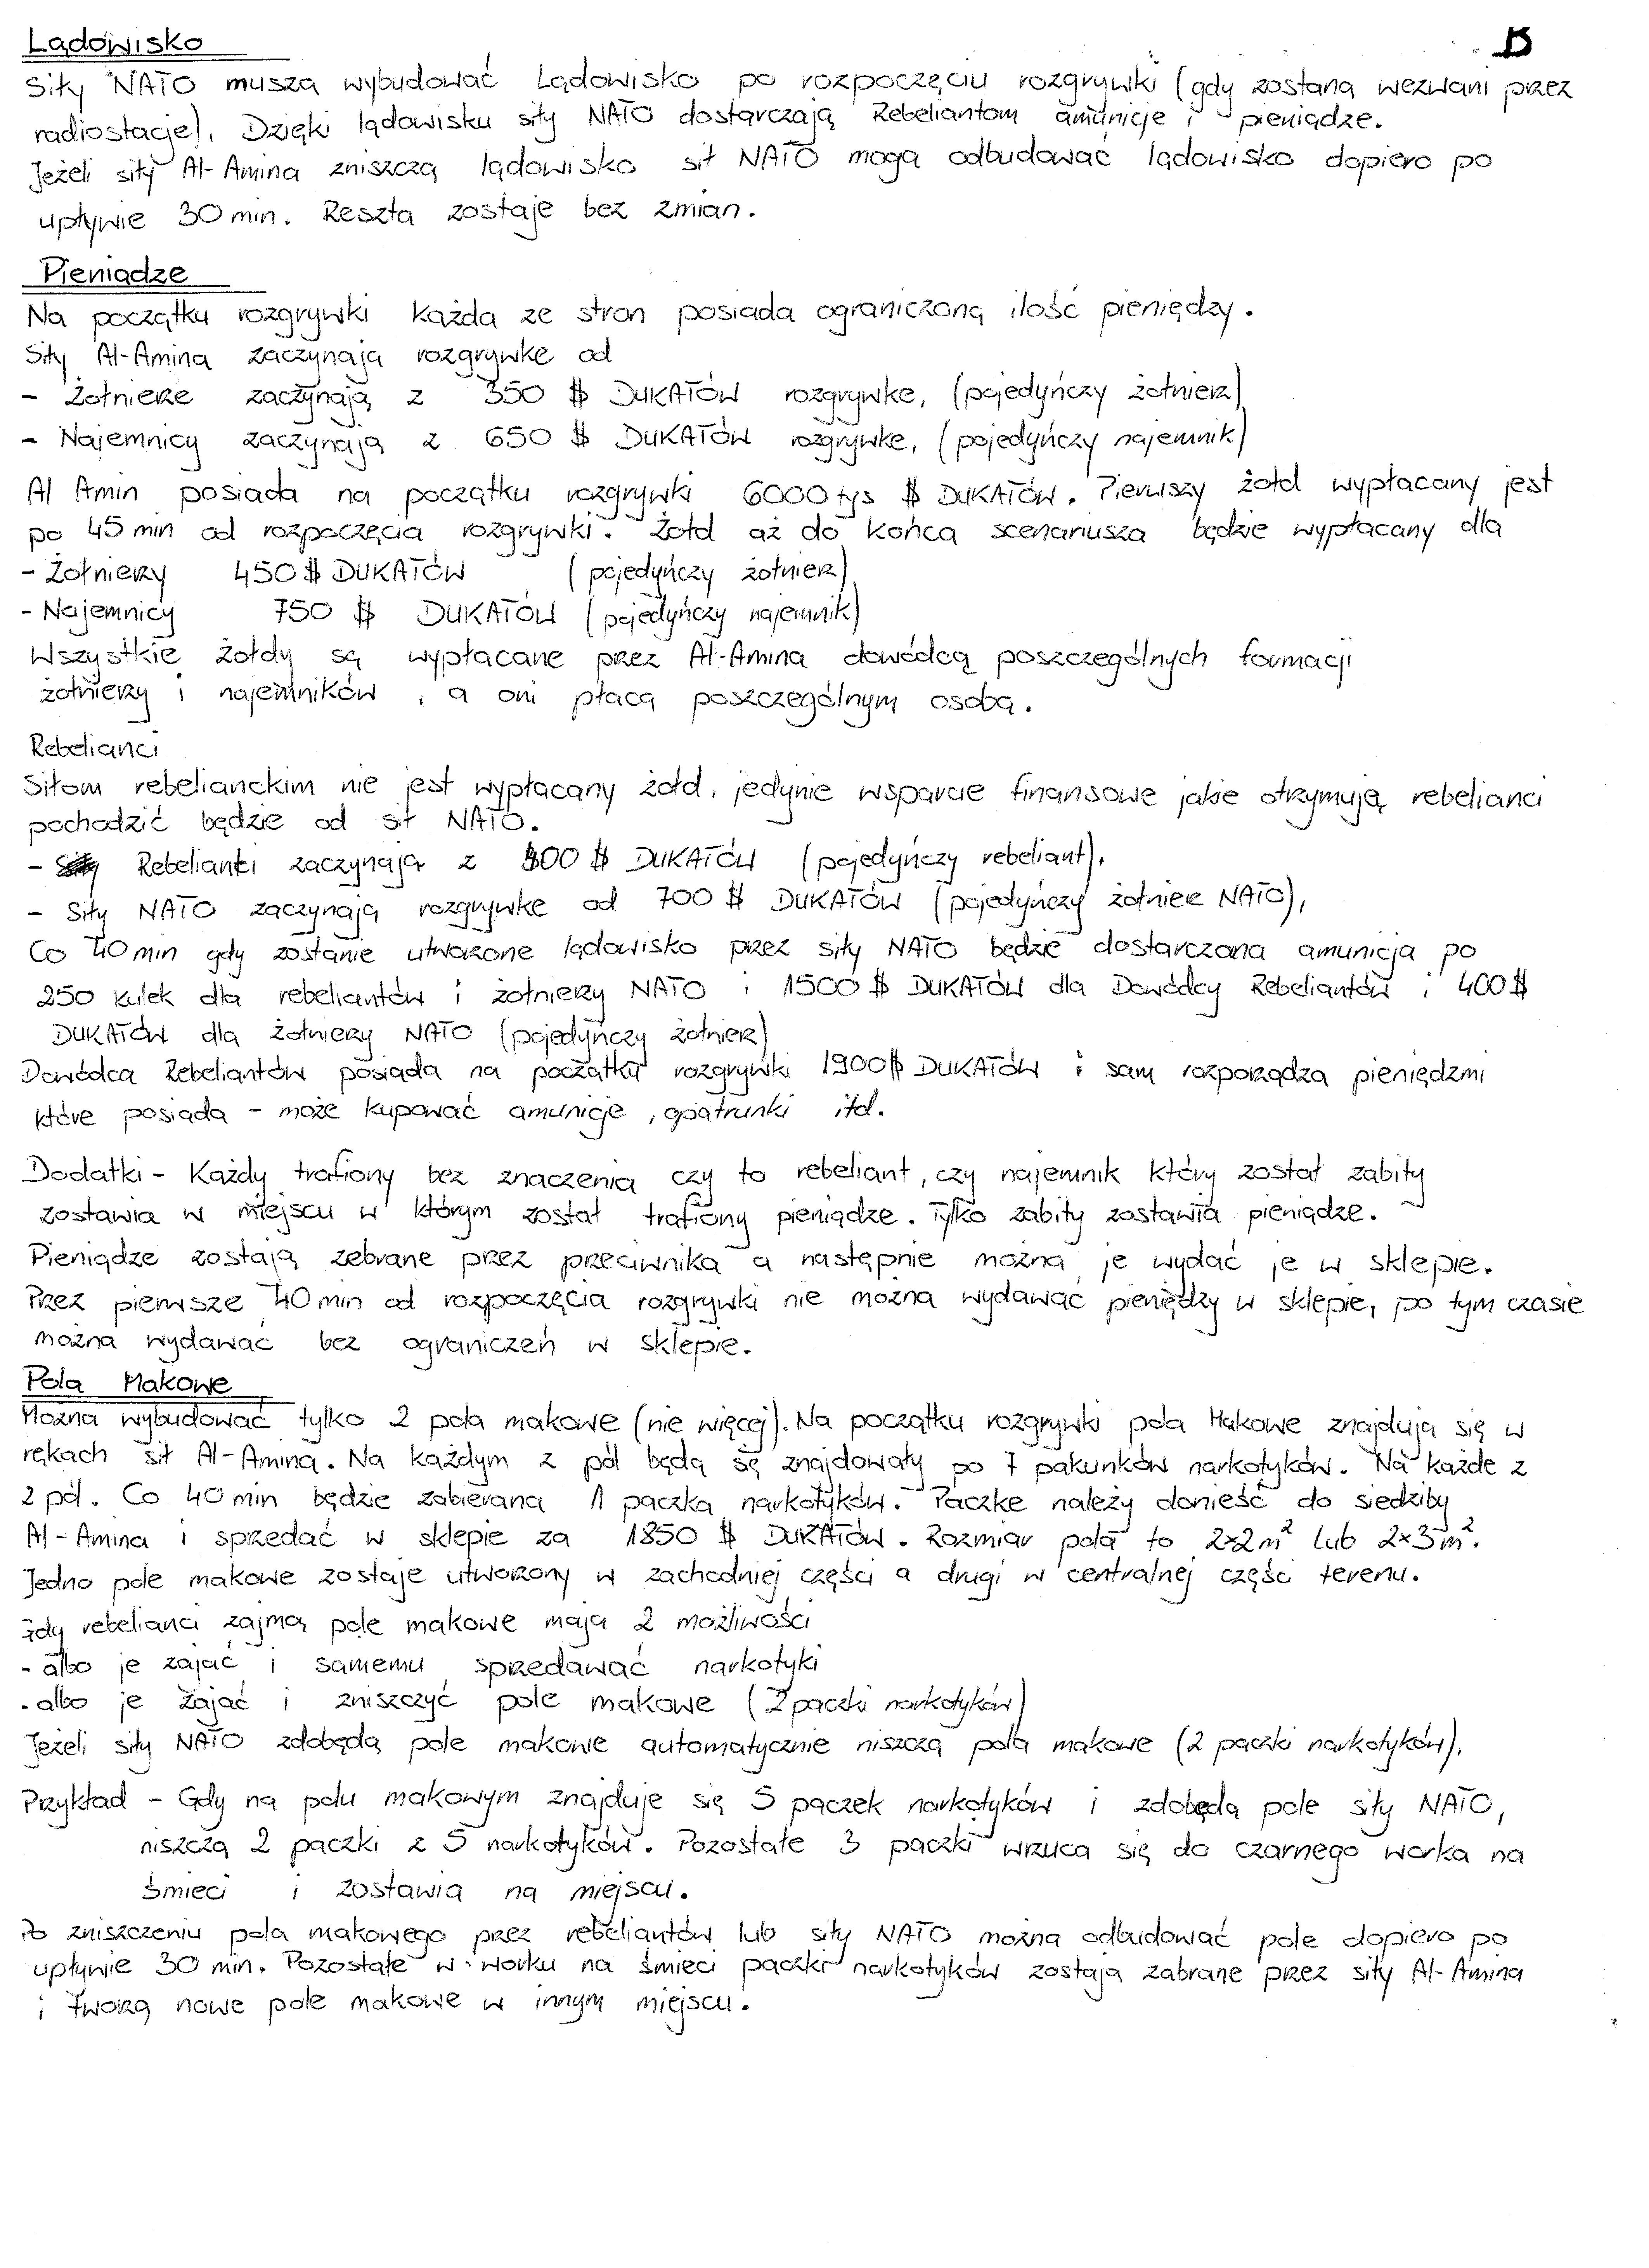 Lądowisko
B
Siły NATO muszą wybudować Lądowisko po rozpoczęciu rozgrywki (gdy zostaną wezwani przez
radiostacje). Dzięki lądowisku siły NATO dostarczają Rebeliantom amunicje i pieniądze.
Jeżeli siły Al-Amina zniszczą lądowisko sił NATO mogą odbudować lądowisko dopiero po
upływie 30 min. Reszta zostaje bez zmian.
Pieniądze
Na początku rozgrywki każda ze stron posiada ograniczoną ilość pieniędzy.
Siły Al-Amina zaczynają rozgrywke od
- Żołnierze zaczynają z 350 $ DUKATÓW rozgrywke, (pojedyńczy żołnierz)
- Najemnicy zaczynają z 650 $ DUKATÓW rozgrywke, (pojedyńczy najemnik)
Al Amin posiada na początku rozgrywki 6000 tys $ DUKATÓW. Pierwszy żołd wypłacany jest
po 45 min od rozpoczęcia rozgrywki. Żołd aż do końca scenariusza będzie wypłacany dla
- Żołnierzy 450 $ DUKATÓW (pojedyńczy żołnierz)
- Najemnicy 750 $ DUKATÓW (pojedyńczy najemnik)
Wszystkie żołdy są wypłacane przez Al-Amina dowódcą poszczególnych formacji
żołnierzy i najemników, a oni płacą poszczególnym osobą.
Rebelianci
Siłom rebelianckim nie jest wypłacany żołd, jedynie wsparcie finansowe jakie otrzymują rebelianci
pochodzić będzie od sił NATO.
- Rebelianci zaczynają z 00 $ DUKATÓW (pojedyńczy rebeliant),
- Siły NATO zaczynają rozgrywke od 700 $ DUKATÓW (pojedyńczy żołnierz NATO),
Co 40 min gdy zostanie utworzone lądowisko przez siły NATO będzie dostarczana amunicja po
250 kulek dla rebeliantów i żołnierzy NATO i 1500 $ DUKATÓW dla Dowódcy Rebeliantów i 400 $
DUKATÓW dla żołnierzy NATO (pojedyńczy żołnierz)
Dowódca Rebeliantów posiada na początku rozgrywki 1900 $ DUKATÓW i sam rozporządza pieniędzmi
które posiada - może kupować amunicje, opatrunki itd.
Dodatki - Każdy trafiony bez znaczenia czy to rebeliant, czy najemnik który został zabity
zostawia w miejscu w którym został trafiony pieniądze. Tylko zabity zostawia pieniądze.
Pieniądze zostają zebrane przez przeciwnika a następnie można je wydać je w sklepie.
Przez pierwsze 40 min od rozpoczęcia rozgrywki nie można wydawać pieniędzy w sklepie, po tym czasie
można wydawać bez ograniczeń w sklepie.
Pola Makowe
Można wybudować tylko 2 pola makowe (nie więcej). Na początku rozgrywki pola Makowe znajdują się w
rękach sił Al-Amina. Na każdym z pól będą się znajdowały po 7 pakunków narkotyków. Na każde z
2 pól. Co 40 min będzie zabierana 1 paczka narkotyków. Paczke należy donieść do siedziby
Al-Amina i sprzedać w sklepie za 1850 $ DUKATÓW. Rozmiar pola to 2x2m² lub 2x3m².
Jedno pole makowe zostaje utworzony w zachodniej części a drugi w centralnej części terenu.
Gdy rebelianci zajmą pole makowe mają 2 możliwości
- albo je zająć i samemu sprzedawać narkotyki
- albo je zająć i zniszczyć pole makowe (2 paczki narkotyków)
Jeżeli siły NATO zdobędą pole makowe automatycznie niszczą pola makowe (2 paczki narkotyków).
Przykład - Gdy na polu makowym znajduje się 5 paczek narkotyków i zdobędą pole siły NATO,
niszczą 2 paczki z 5 narkotyków. Pozostałe 3 paczki wrzuca się do czarnego worka na
śmieci i zostawia na miejscu.
Po zniszczeniu pola makowego przez rebeliantów lub siły NATO można odbudować pole dopiero po
upływie 30 min. Pozostałe w worku na śmieci paczki narkotyków zostają zabrane przez siły Al-Amina
i tworzą nowe pole makowe w innym miejscu.